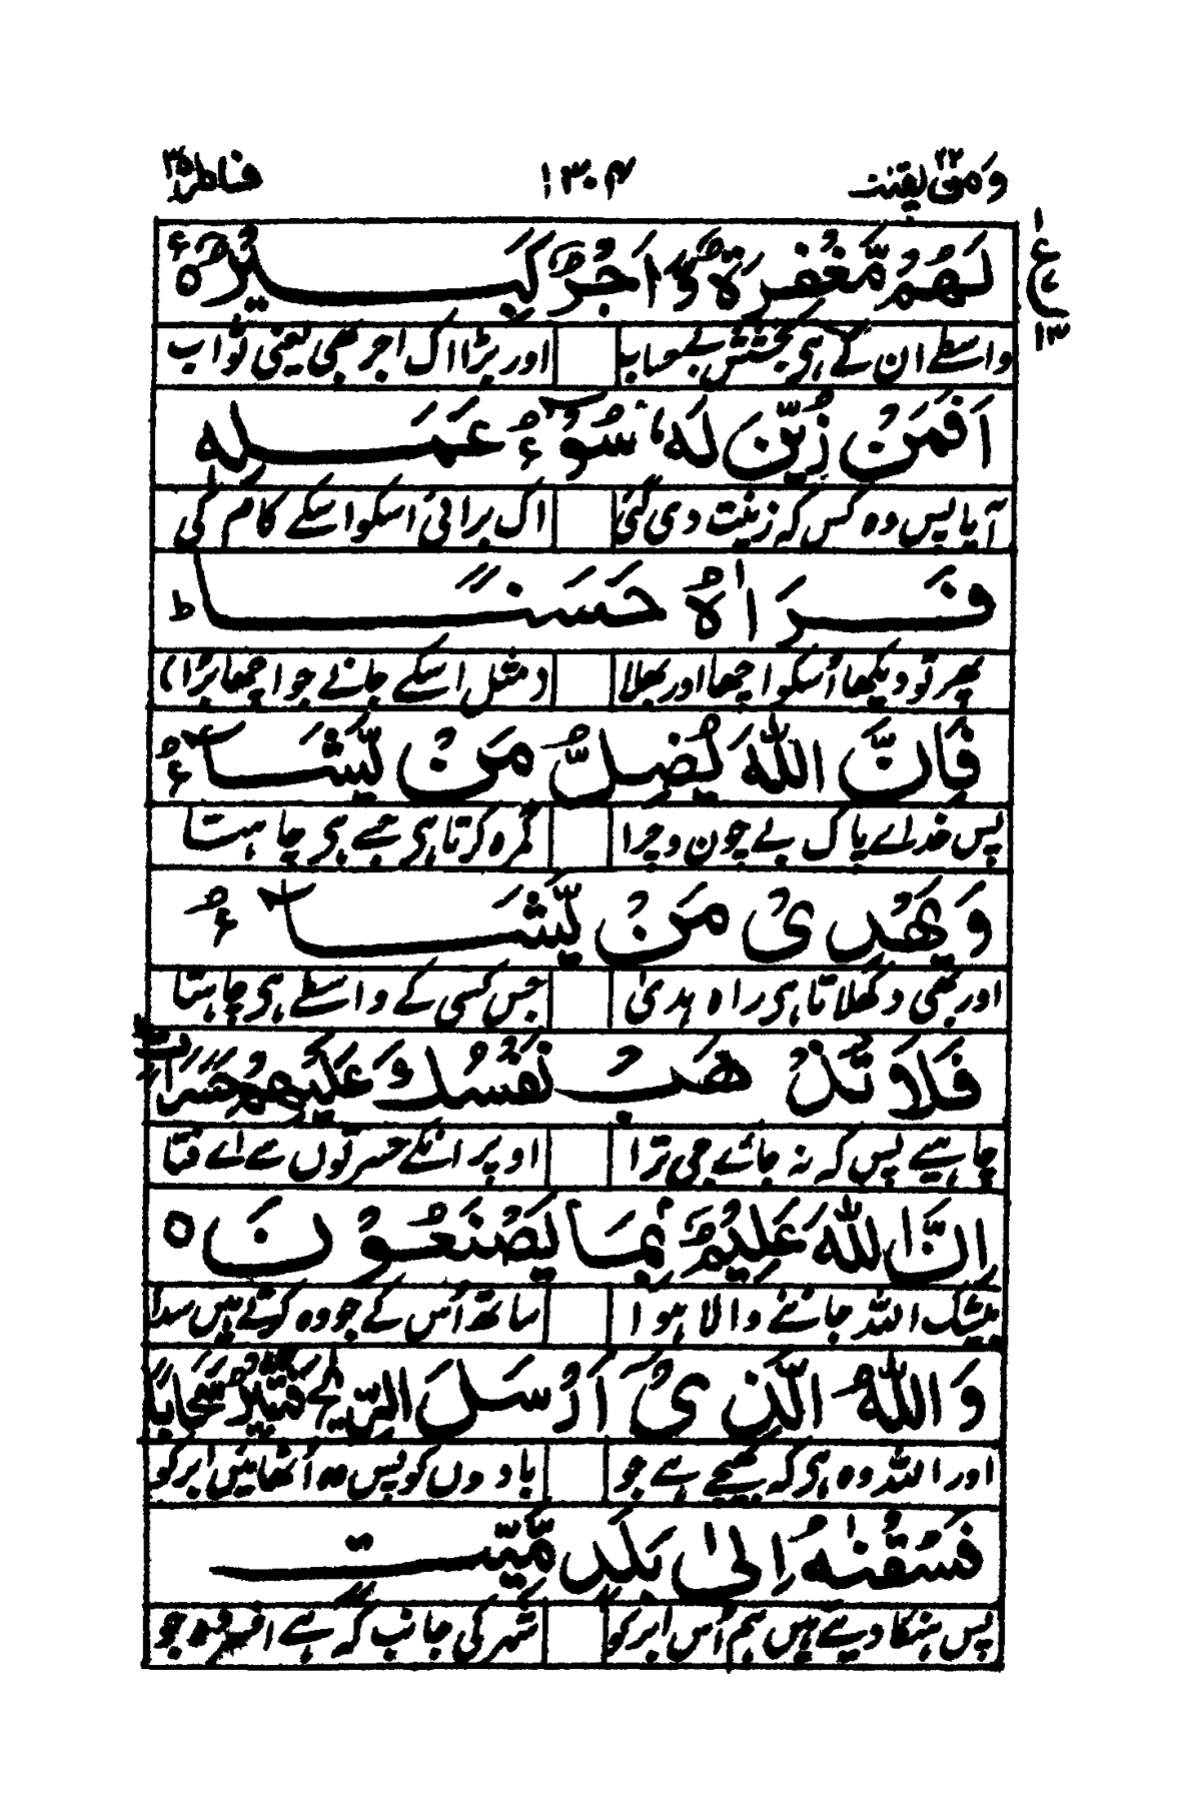 ومن یقنت ۲۲ ۱۳۰۴ فاطر ۳۵
۱ ع ۷ ۱۳
لَهُمْ مَّغْفِرَةٌ وَّاَجْرٌ كَبِیْرٌ ۠
واسطے ان کے ہی بخشش بے حساب اور بڑا اک اجر بھی یعنی ثواب
اَفَمَنْ زُیِّنَ لَهٗ سُوْٓءُ عَمَلِهٖ
آیا پس وہ کس کہ زینت دی گئی اک برائی اسکو اسکے کام کی
فَرَاٰهُ حَسَنًا ؕ
پھر تو دیکھا اُسکو اچھا اور بھلا (مثل اسکے جانے جو اچھا بڑا)
فَاِنَّ اللّٰهَ یُضِلُّ مَنْ یَّشَآءُ
پس خداے پاک بے چون وچرا گمرہ کرتا ہی جسے ہی چاہتا
وَیَهْدِیْ مَنْ یَّشَآءُ
اور بھی دکھلاتا ہی راہ ہدیٰ جس کسی کے واسطے ہی چاہتا
فَلَا تَذْهَبْ نَفْسُكَ عَلَیْهِمْ حَسَرٰتٍ
چاہیے پس کہ نہ جائے جی ترا اوپر انکے حسرتوں سے اے فتا
اِنَّ اللّٰهَ عَلِیْمٌۢ بِمَا یَصْنَعُوْنَ ۝
بیشک اللہ جاننے والا ہوا ساتھ اُس کے جو وہ کرتے ہیں سدا
وَاللّٰهُ الَّذِیْٓ اَرْسَلَ الرِّیٰحَ فَتُثِیْرُ سَحَابًا
اور اللہ وہ ہی کہ بھیجے ہے جو بادوں کو پس وہ اُٹھائیں ابر کو
فَسُقْنٰهُ اِلٰی بَلَدٍ مَّیِّتٍ
پس ہنکا دیے ہیں ہم اُس ابر کو شہر کی جانب کہ ہے افسردہ جو